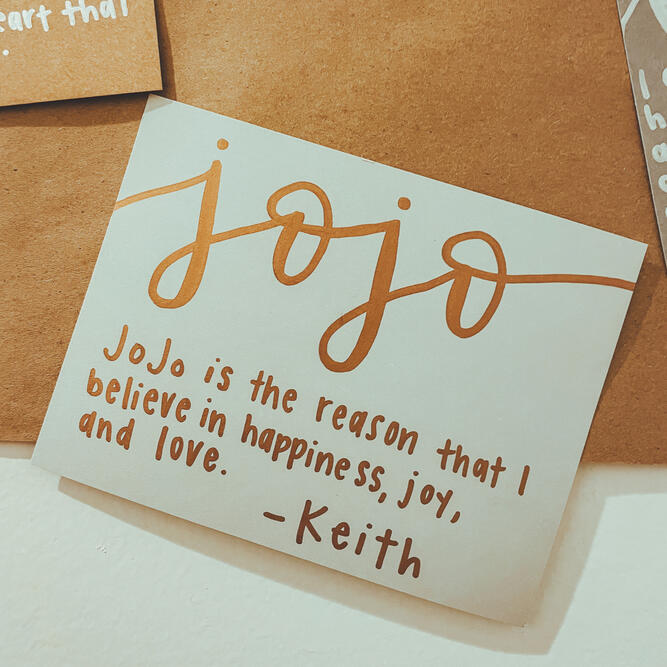 eart that
.
jojo
JoJo is the reason that I
believe in happiness, joy,
and love.
-Keith
I
h
a